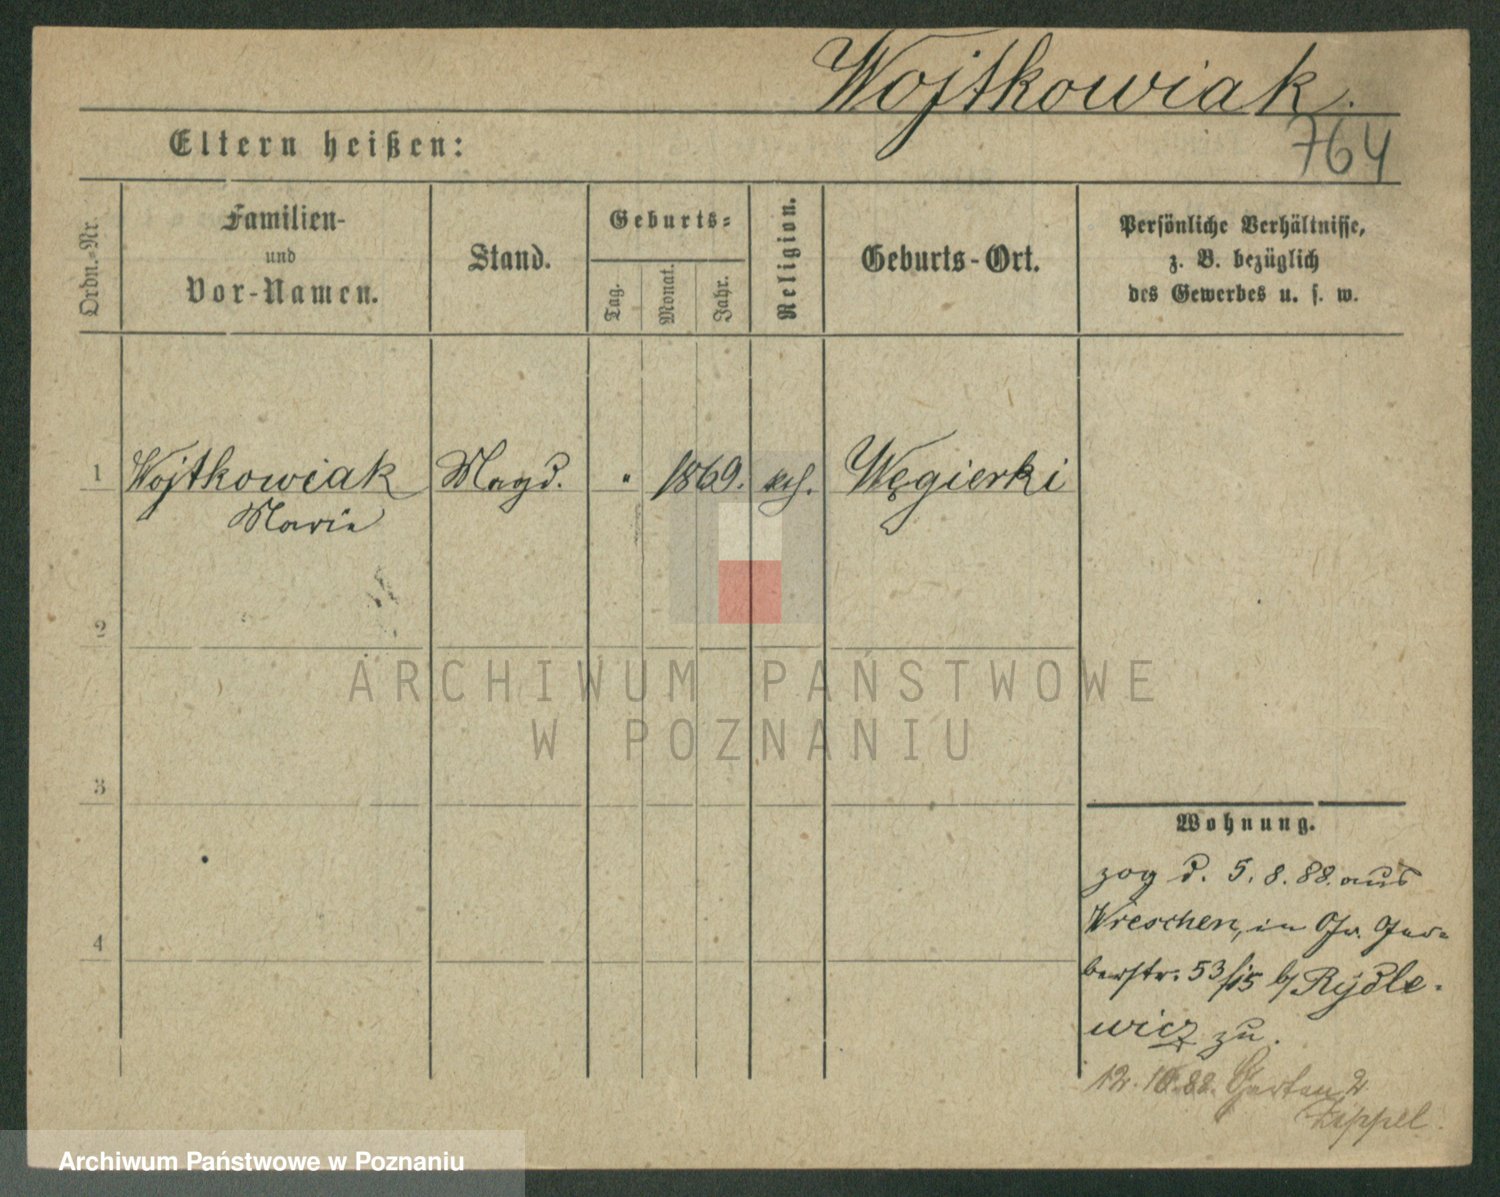 Wojtkowiak.
764
Eltern heißen:
Ordn.=Nr.
Familien-
und
Vor-Namen.
Stand.
Geburts=
Tag.
Monat.
Jahr.
Religion.
Geburts-Ort.
Persönliche Verhältnisse,
z. B. bezüglich
des Gewerbes u. s. w.
1 Wojtkowiak Magd. " 1869. kth. Węgierki
Marie
2
3
4
Wohnung.
zog d. 5.8.88. aus
Wreschen, in Gr. Ger-
berstr. 53/15 b/ Rydle-
wicz zu.
12.10.88. Garten 2
Zippel.
ARCHIWUM PAŃSTWOWE
W POZNANIU
Archiwum Państwowe w Poznaniu